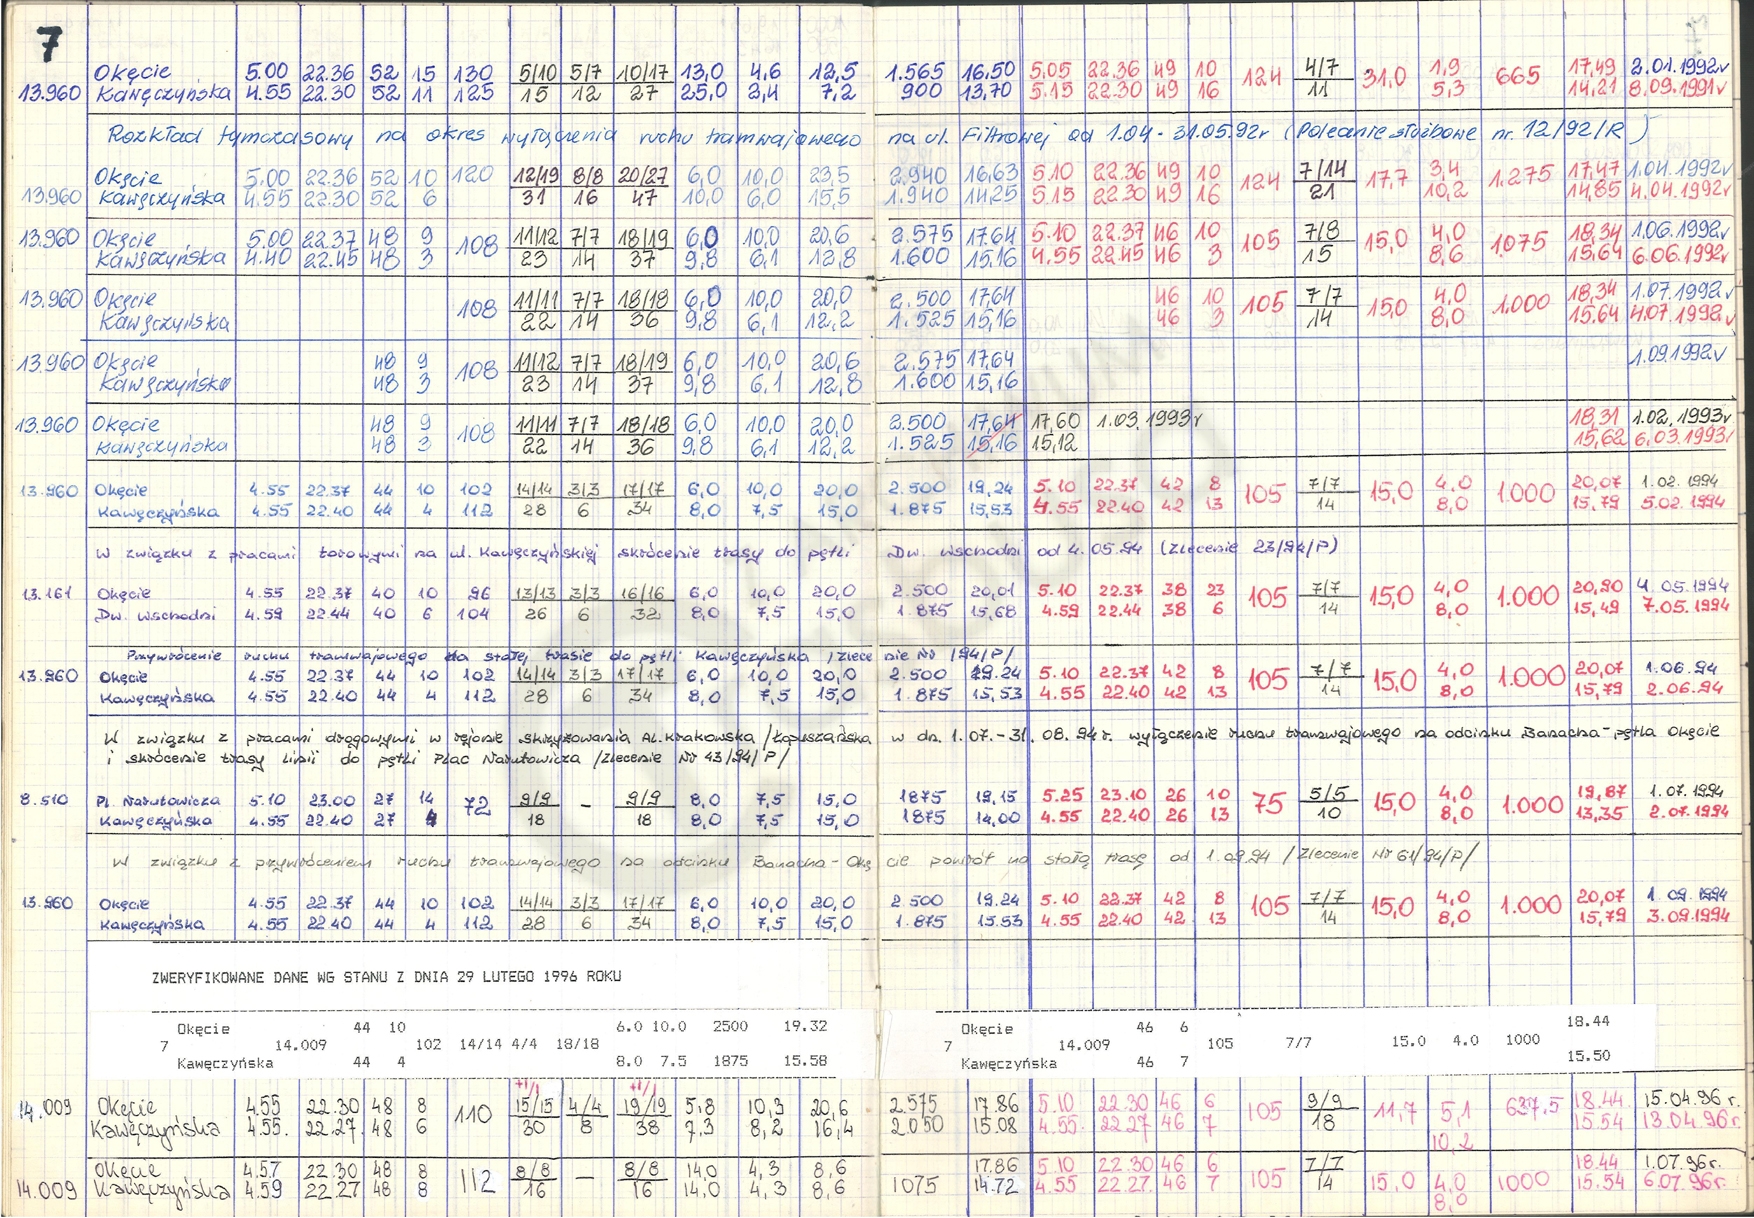 7
Okęcie 5.00 22.36 52 15 130 5/10 5/7 10/17 13,0 4,6 12,5 1.565 16,50 5.05 22.36 49 10 124 4/7 31,0 1,9 665 17,49 2.01.1992r
13.960 Kawęczyńska 4.55 22.30 52 11 125 15 12 27 25,0 2,4 7,2 900 13,70 5.15 22.30 49 16 11 5,3 14,21 8.09.1991r
Rozkład tymczasowy na okres wyłączenia ruchu tramwajowego na ul. Filtrowej od 1.04 - 31.05.92r (Polecenie służbowe nr. 12/92/R)
Okęcie 5.00 22.36 52 10 120 12/19 8/8 20/27 6,0 10,0 23,5 2.940 16,63 5.10 22.36 49 10 124 7/14 17,7 3,4 1.275 17,47 1.04.1992r
13.960 Kawęczyńska 4.55 22.30 52 6 31 16 47 10,0 6,0 15,5 1.940 14,25 5.15 22.30 49 16 21 10,2 14,85 4.04.1992r
13.960 Okęcie 5.00 22.37 48 9 108 11/12 7/7 18/19 6,0 10,0 20,6 2.575 17,64 5.10 22.37 46 10 105 7/8 15,0 4,0 1075 18,34 1.06.1992r
Kawęczyńska 4.40 22.45 48 3 23 14 37 9,8 6,1 12,8 1.600 15,16 4.55 22.45 46 3 15 8,6 15,64 6.06.1992r
13.960 Okęcie 108 11/11 7/7 18/18 6,0 10,0 20,0 2.500 17,64 46 10 105 7/7 15,0 4,0 1.000 18,34 1.07.1992r
Kawęczyńska 22 14 36 9,8 6,1 12,2 1.525 15,16 46 3 14 8,0 15.64 4.07.1992r
13.960 Okęcie 48 9 108 11/12 7/7 18/19 6,0 10,0 20,6 2.575 17,64 1.09.1992r
Kawęczyńska 48 3 23 14 37 9,8 6,1 12,8 1.600 15,16
13.960 Okęcie 48 9 108 11/11 7/7 18/18 6,0 10,0 20,0 2.500 17,64 17,60 1.03.1993r 18,31 1.02.1993r
Kawęczyńska 48 3 22 14 36 9,8 6,1 12,2 1.525 15,16 15,12 15,62 6.03.1993r
13.960 Okęcie 4.55 22.37 44 10 102 14/14 3/3 17/17 6,0 10,0 20,0 2.500 19,24 5.10 22.37 42 8 105 7/7 15,0 4,0 1.000 20,07 1.02.1994
Kawęczyńska 4.55 22.40 44 4 112 28 6 34 8,0 7,5 15,0 1.875 15,53 4.55 22.40 42 13 14 8,0 15,79 5.02.1994
W związku z pracami torowymi na ul. Kawęczyńskiej skrócenie trasy do pętli Dw. Wschodni od 4.05.94 (Zlecenie 23/94/P)
13.161 Okęcie 4.55 22.37 40 10 96 13/13 3/3 16/16 6,0 10,0 20,0 2.500 20,01 5.10 22.37 38 23 105 7/7 15,0 4,0 1.000 20,90 4.05.1994
Dw. Wschodni 4.59 22.44 40 6 104 26 6 32 8,0 7,5 15,0 1.875 15,68 4.59 22.44 38 6 14 8,0 15,49 7.05.1994
Przywrócenie ruchu tramwajowego na stałej trasie do pętli Kawęczyńska /Zlecenie Nr /94/P/
13.960 Okęcie 4.55 22.37 44 10 102 14/14 3/3 17/17 6,0 10,0 20,0 2.500 19.24 5.10 22.37 42 8 105 7/7 15,0 4,0 1.000 20,07 1.06.94
Kawęczyńska 4.55 22.40 44 4 112 28 6 34 8,0 7,5 15,0 1.875 15,53 4.55 22.40 42 13 14 8,0 15,79 2.06.94
W związku z pracami drogowymi w rejonie skrzyżowania Al. Krakowska /Łopuszańska w dn. 1.07.-31.08.94r. wyłączenie ruchu tramwajowego na odcinku Banacha-pętla Okęcie
i skrócenie trasy linii do pętli Plac Narutowicza /Zlecenie Nr 43/94/P/
8.510 Pl. Narutowicza 5.10 23.00 27 14 72 9/9 - 9/9 8,0 7,5 15,0 1875 19,15 5.25 23.10 26 10 75 5/5 15,0 4,0 1.000 19,87 1.07.1994
Kawęczyńska 4.55 22.40 27 4 18 18 8,0 7,5 15,0 1875 14,00 4.55 22.40 26 13 10 8,0 13,35 2.07.1994
W związku z przywróceniem ruchu tramwajowego na odcinku Banacha - Okęcie powrót na stałą trasę od 1.09.94 /Zlecenie Nr 61/94/P/
13.960 Okęcie 4.55 22.37 44 10 102 14/14 3/3 17/17 6,0 10,0 20,0 2.500 19.24 5.10 22.37 42 8 105 7/7 15,0 4,0 1.000 20,07 1.09.1994
Kawęczyńska 4.55 22.40 44 4 112 28 6 34 8,0 7,5 15,0 1.875 15.53 4.55 22.40 42 13 14 8,0 15,79 3.09.1994
ZWERYFIKOWANE DANE WG STANU Z DNIA 29 LUTEGO 1996 ROKU
Okęcie 44 10 6.0 10.0 2500 19.32 Okęcie 46 6 18.44
7 14.009 102 14/14 4/4 18/18 7 14.009 105 7/7 15.0 4.0 1000
Kawęczyńska 44 4 8.0 7.5 1875 15.58 Kawęczyńska 46 7 15.50
+1/1 +1/1
14.009 Okęcie 4.55 22.30 48 8 110 15/15 4/4 19/19 5,8 10,3 20,6 2.575 17.86 5.10 22.30 46 6 105 9/9 11,7 5,1 637.5 18.44 15.04.96 r.
Kawęczyńska 4.55. 22.27 48 6 30 8 38 7,3 8,2 16,4 2.050 15.08 4.55. 22.27 46 7 18 10,2 15.54 13.04.96r.
Okęcie 4.57 22.30 48 8 112 8/8 - 8/8 14,0 4,3 8,6 17.86 5.10 22.30 46 6 105 7/7 15,0 4,0 1000 18.44 1.07.96r.
14.009 Kawęczyńska 4.59 22.27 48 8 16 16 14,0 4,3 8,6 1075 14.72 4.55 22.27. 46 7 14 8,0 15.54 6.07.96r.